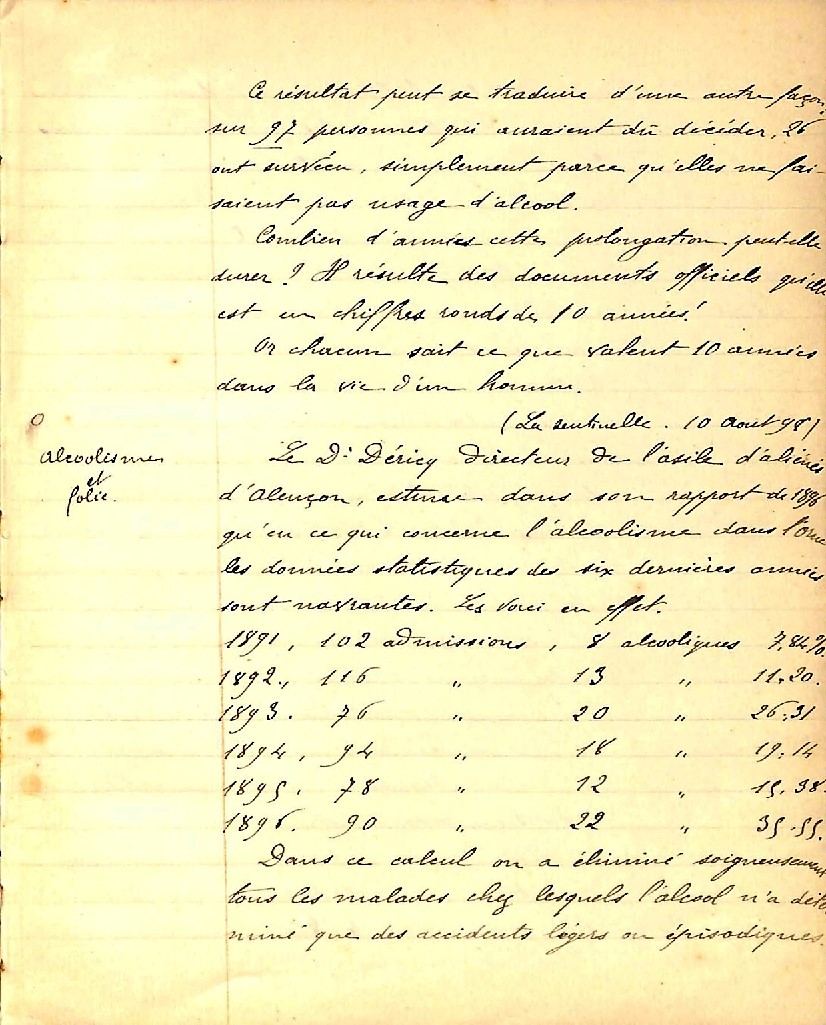 Ce résultat peut se traduire d'une autre façon,
sur 97 personnes qui auraient dû décéder, 26
ont survécu, simplement parce qu'elles ne fai-
saient pas usage d'alcool.
Combien d'années cette prolongation peut-elle
durer ? Il résulte des documents officiels qu'elle
est en chiffres ronds de 10 années !
Or chacun sait ce que valent 10 années
dans la vie d'un homme.
(La sentinelle. 10 Aout 98)
Alcoolisme
et
folie.
Le Dr Déricq directeur de l'asile d'aliénés
d'Alençon, estime dans son rapport de 1896
qu'en ce qui concerne l'alcoolisme dans l'Orne
les données statistiques des six dernières années
sont navrantes. Les voici en effet.
1891, 102 admissions, 8 alcooliques 7,84%
1892., 116 " 13 " 11.20.
1893. 76 " 20 " 26.31
1894, 94 " 18 " 19.14
1895. 78 " 12 " 15.38.
1896. 90 " 22 " 35.55.
Dans ce calcul on a éliminé soigneusement
tous les malades chez lesquels l'alcool n'a déte
miné que des accidents légers ou épisodiques.